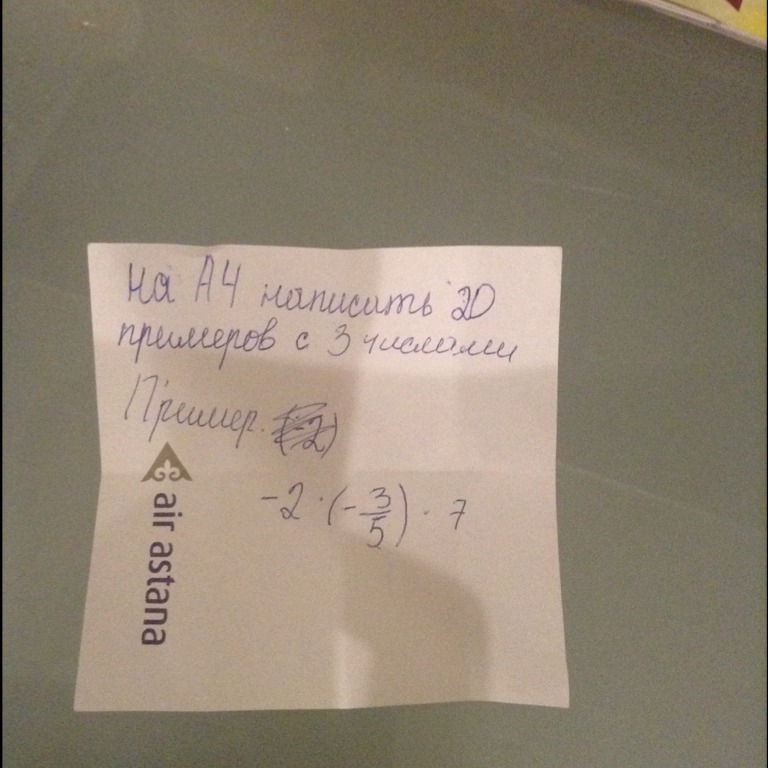 на А4 написать 20
примеров с 3 числами
Пример. (-2)
-2 · (-3/5) · 7
air astana